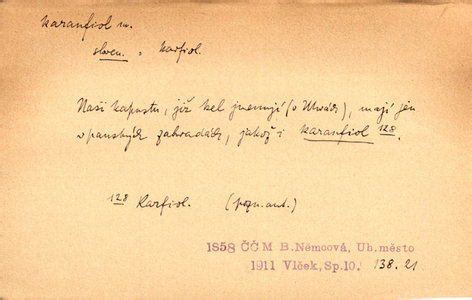 karanfiol m.
sloven. = karfiol.
Naši kapustu, již kel jmenují (v Uhrách), mají jen
v panských zahradách, jakož i karanfiol 128.
128 Karfiol. (pozn. aut.)
1858 ČČM B.Němcová, Uh.město
1911 Vlček, Sp.10. 138.21